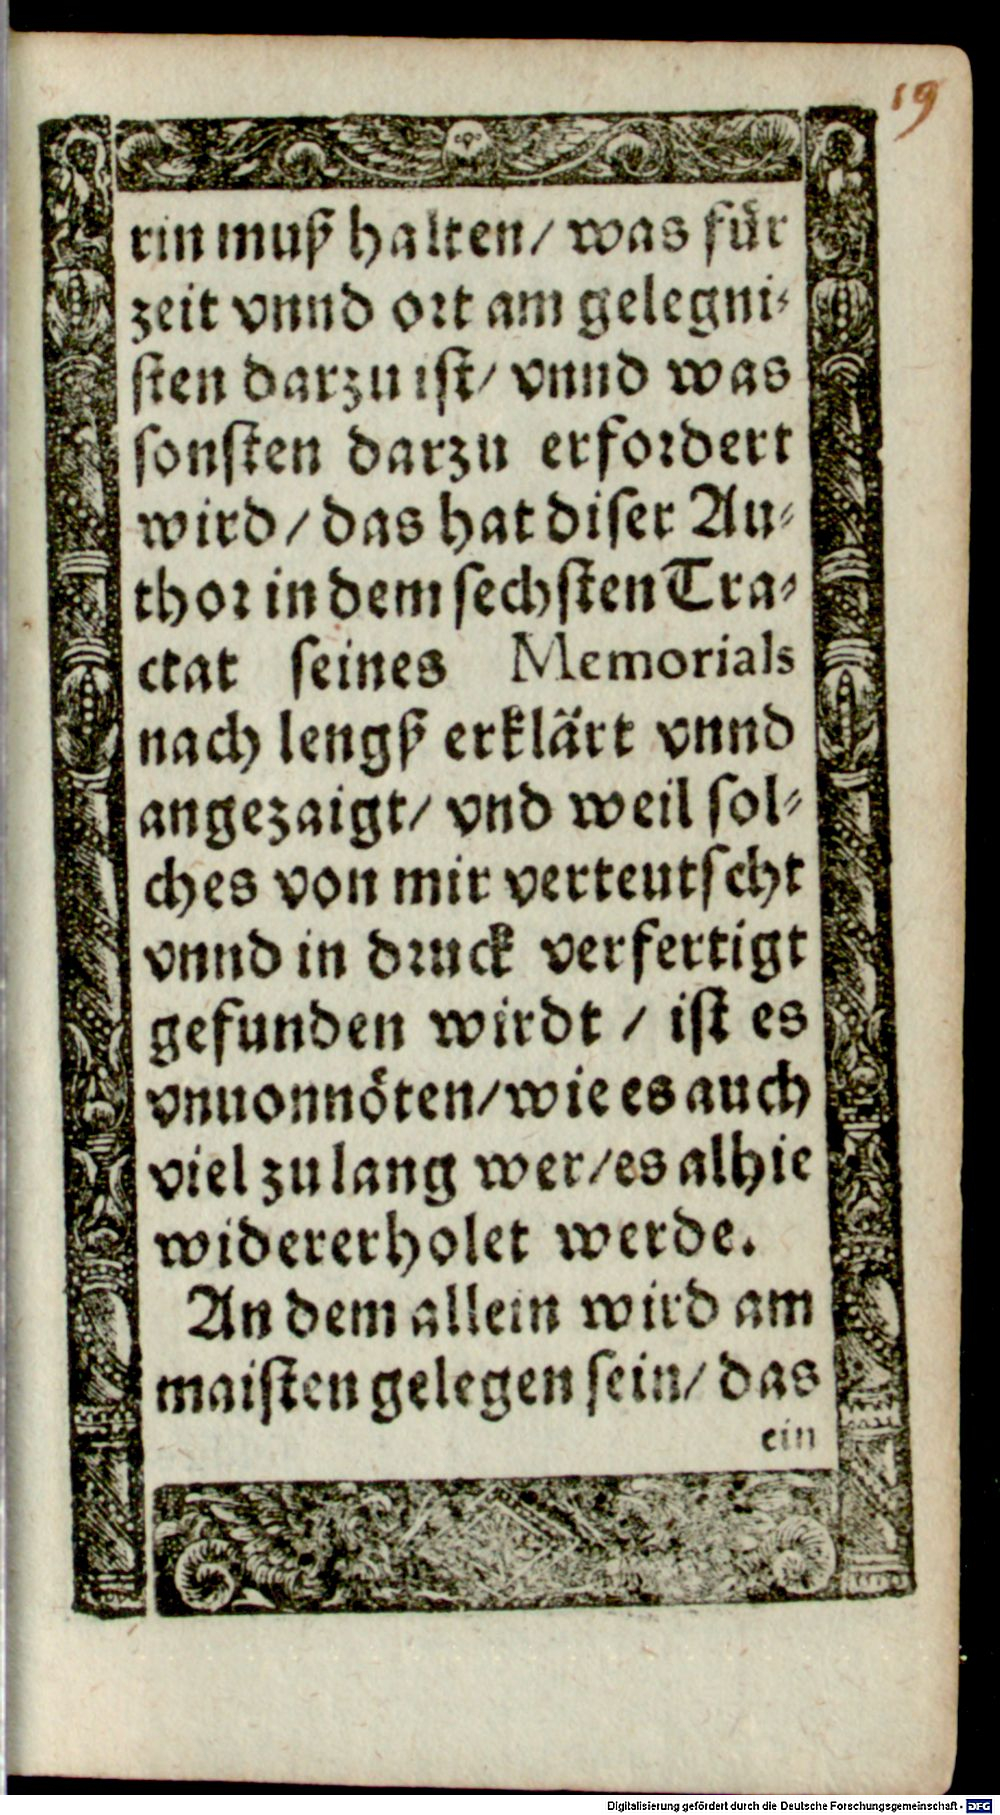 19
rin muß halten/ was für
zeit vnnd ort am gelegni-
sten darzu ist/ vnnd was
sonsten darzu erfordert
wird/ das hat diser Au-
thor in dem sechsten Tra-
ctat seines Memorials
nach lengß erklärt vnnd
angezaigt/ vnd weil sol-
ches von mir verteutscht
vnnd in druck verfertigt
gefunden wirdt / ist es
vnuonnöten/ wie es auch
viel zu lang wer/ es alhie
widererholet werde.
An dem allein wird am
maisten gelegen sein/ das
ein
Digitalisierung gefördert durch die Deutsche Forschungsgemeinschaft - DFG